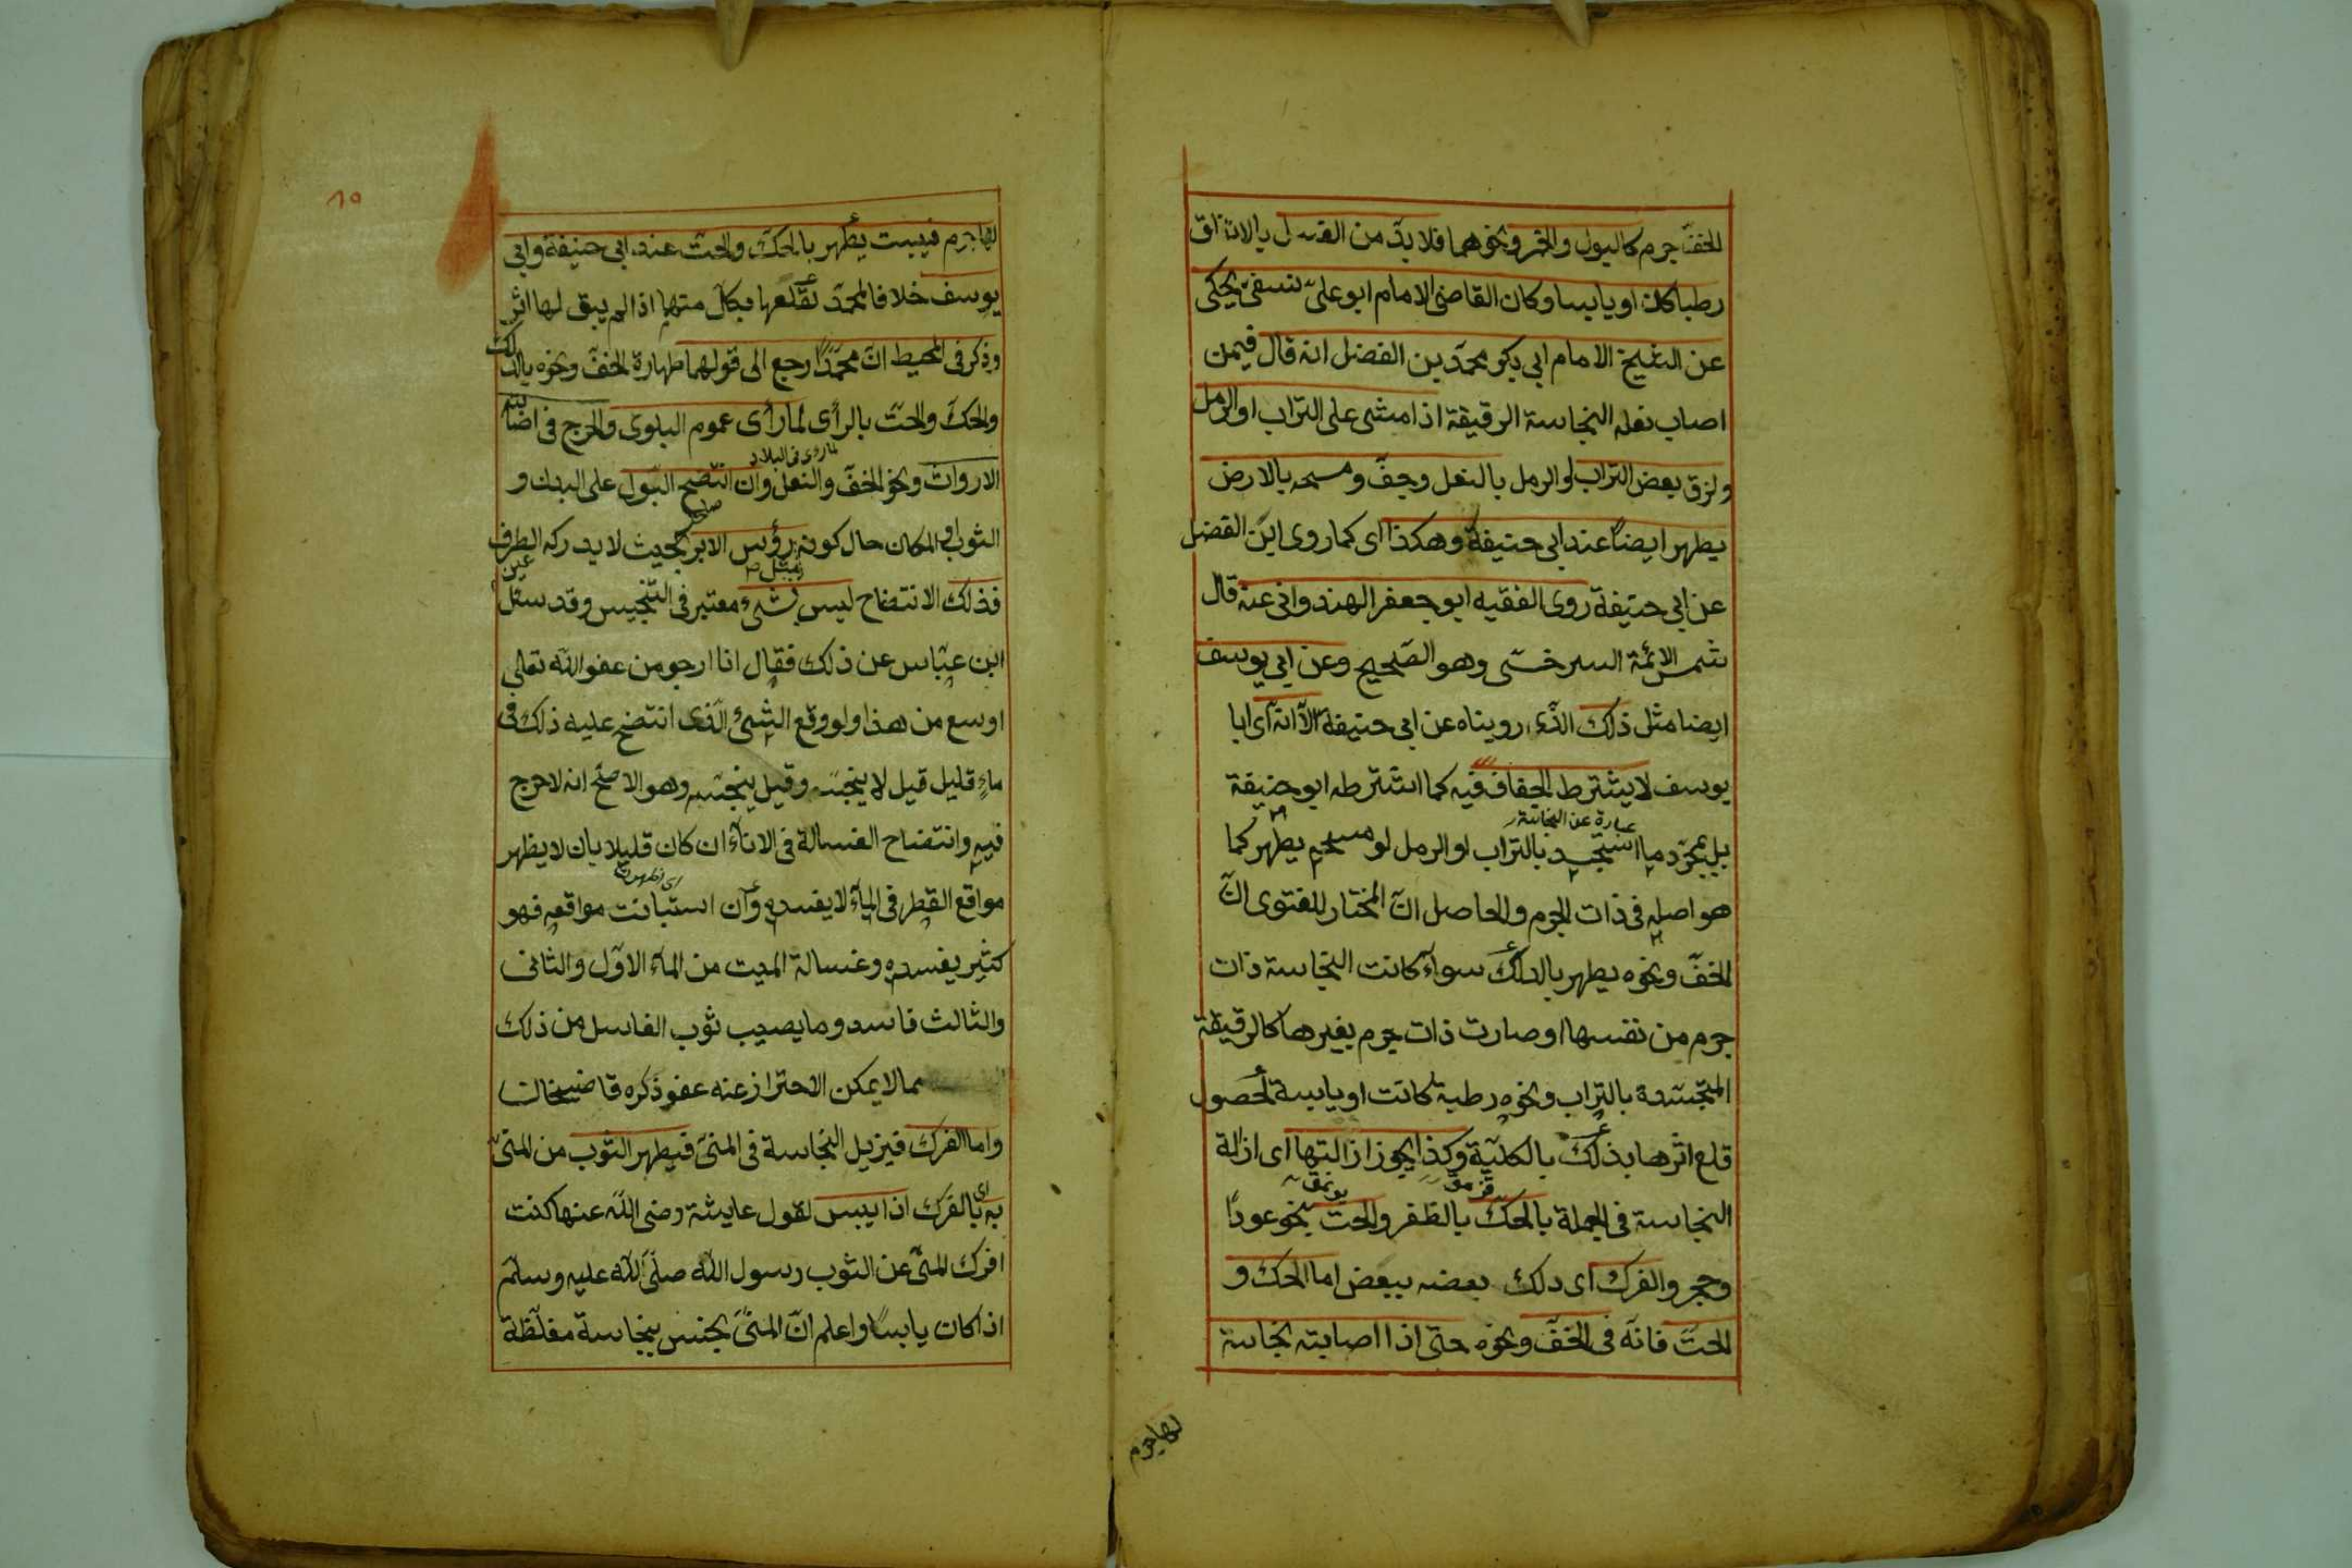 للخف جرم كالبول والخمر ونحوهما فلا بد من الغسل بالاتفاق
رطبا كان او يابسا وكان القاضى الامام ابو على نسفى يحكى
عن الشيخ الامام ابى بكر محمد بن الفضل انه قال فيمن
اصاب نعله النجاسة الرقيقة اذا مشى على التراب او الرمل
ولزق بعض التراب او الرمل بالنعل وجف ومسحه بالارض
يطهر ايضا عند ابى حنيفة وهكذا اى كما روى ابن الفضل
عن ابى حنيفة روى الفقيه ابو جعفر الهندوانى عنه قال
شمس الائمة السرخسى وهو الصحيح وعن ابى يوسف
ايضا مثل ذلك الذى رويناه عن ابى حنيفة الا انه اى ابا
يوسف لا يشترط الجفاف فيه كما اشترطه ابو حنيفة
عبارة عن النجاسة
بل بمجرد ما استجسد بالتراب او الرمل لو مسحه يطهر كما
هو اصله فى ذات الجرم والحاصل ان المختار للفتوى ان
الخف ونحوه يطهر بالدلك سواء كانت النجاسة ذات
جرم من نفسها او صارت ذات جرم بغيرها كالرقيقة
المتجسدة بالتراب ونحوه رطبة كانت او يابسة لحصول
قلع اثرها بذلك بالكلية وكذا يجوز ازالتها اى ازالة
النجاسة فى الجملة بالحك بالظفر والحت بنحو عود
وحجر والفرك اى دلك بعضه ببعض اما الحك و
الحت فانه فى الخف ونحوه حتى اذا اصابته نجاسة
لها جرم
١٥
لها جرم فيبست يطهر بالحك والحت عند ابى حنيفة وابى
يوسف خلافا لمحمد لقلعها بكل منهما اذا لم يبق لها اثر
وذكر فى المحيط ان محمدا رجع الى قولهما طهارة الخف ونحوه بالدلك
والحك والحت بالرأى لما رأى عموم البلوى والحرج فى اصابته
لما روى فى البلاد
الاروات ونحو الخف والنعل وان انتضح البول على البدن و
الثوب او المكان حال كونه رؤس الابر بحيث لا يدركه الطرف
مثل
فذلك الانتضاح ليس بشىء معتبر فى التنجيس وقد سئل
ابن عباس عن ذلك فقال انا ارجو من عفو الله تعالى
اوسع من هذا ولو وقع الشىء الذى انتضح عليه ذلك فى
ماء قليل قيل لا ينجسه وقيل ينجسه وهو الاصح انه لا حرج
فيه وانتضاح الغسالة فى الاناء ان كان قليلا بان لا يظهر
مواقع القطر فى الماء لا يفسده وان استبانت مواقعه فهو
كثير يفسده وغسالة الميت من الماء الاول والثانى
والثالث فاسد وما يصيب ثوب الغاسل من ذلك
مما لا يمكن الاحتراز عنه عفو ذكره قاضيخان
واما الفرك فيزيل النجاسة فى المنى فيطهر الثوب من المنى
به اى بالفرك اذا يبس لقول عايشة رضى الله عنها كنت
افرك المنى عن الثوب رسول الله صلى الله عليه وسلم
اذا كان يابسا واعلم ان المنى يجنس بنجاسة مغلظة